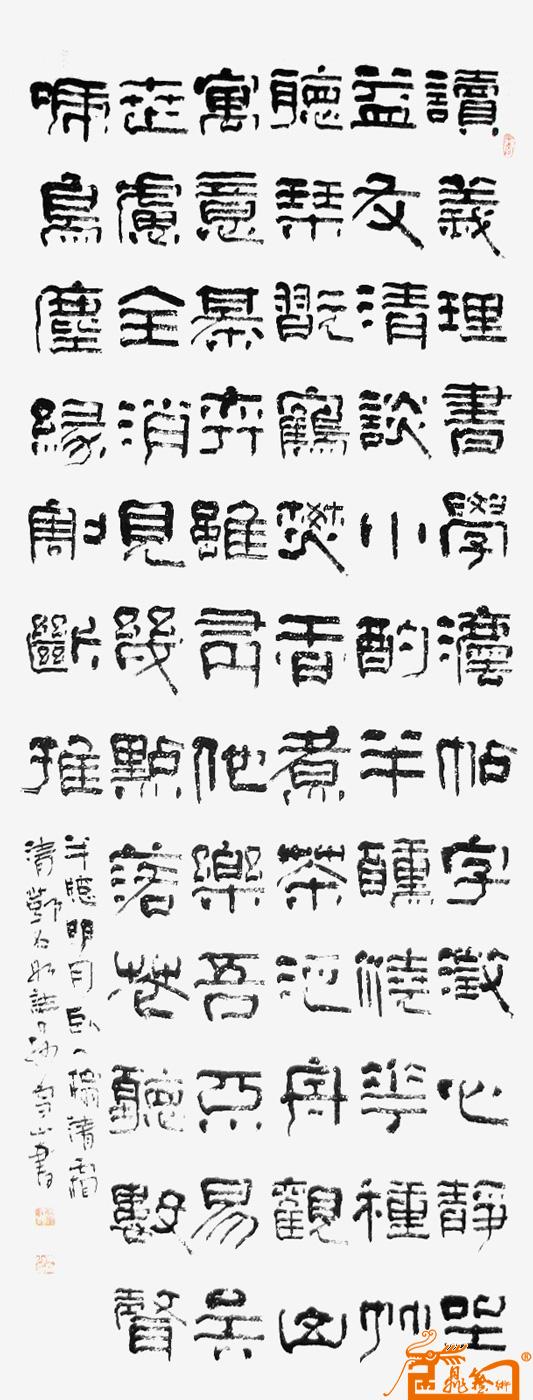 讀義理書學灋帖字澂心靜坐
益友清談小酌半醺澆華種竹
聽琴翫鶴焚香煮茶泛舟觀山
寓意棊弈雖有他樂吾不易矣
世慮全消見幾點落花聽數聲
啼鳥塵緣割斷推
半牕明月臥一榻清霜
清鄧石如 山書